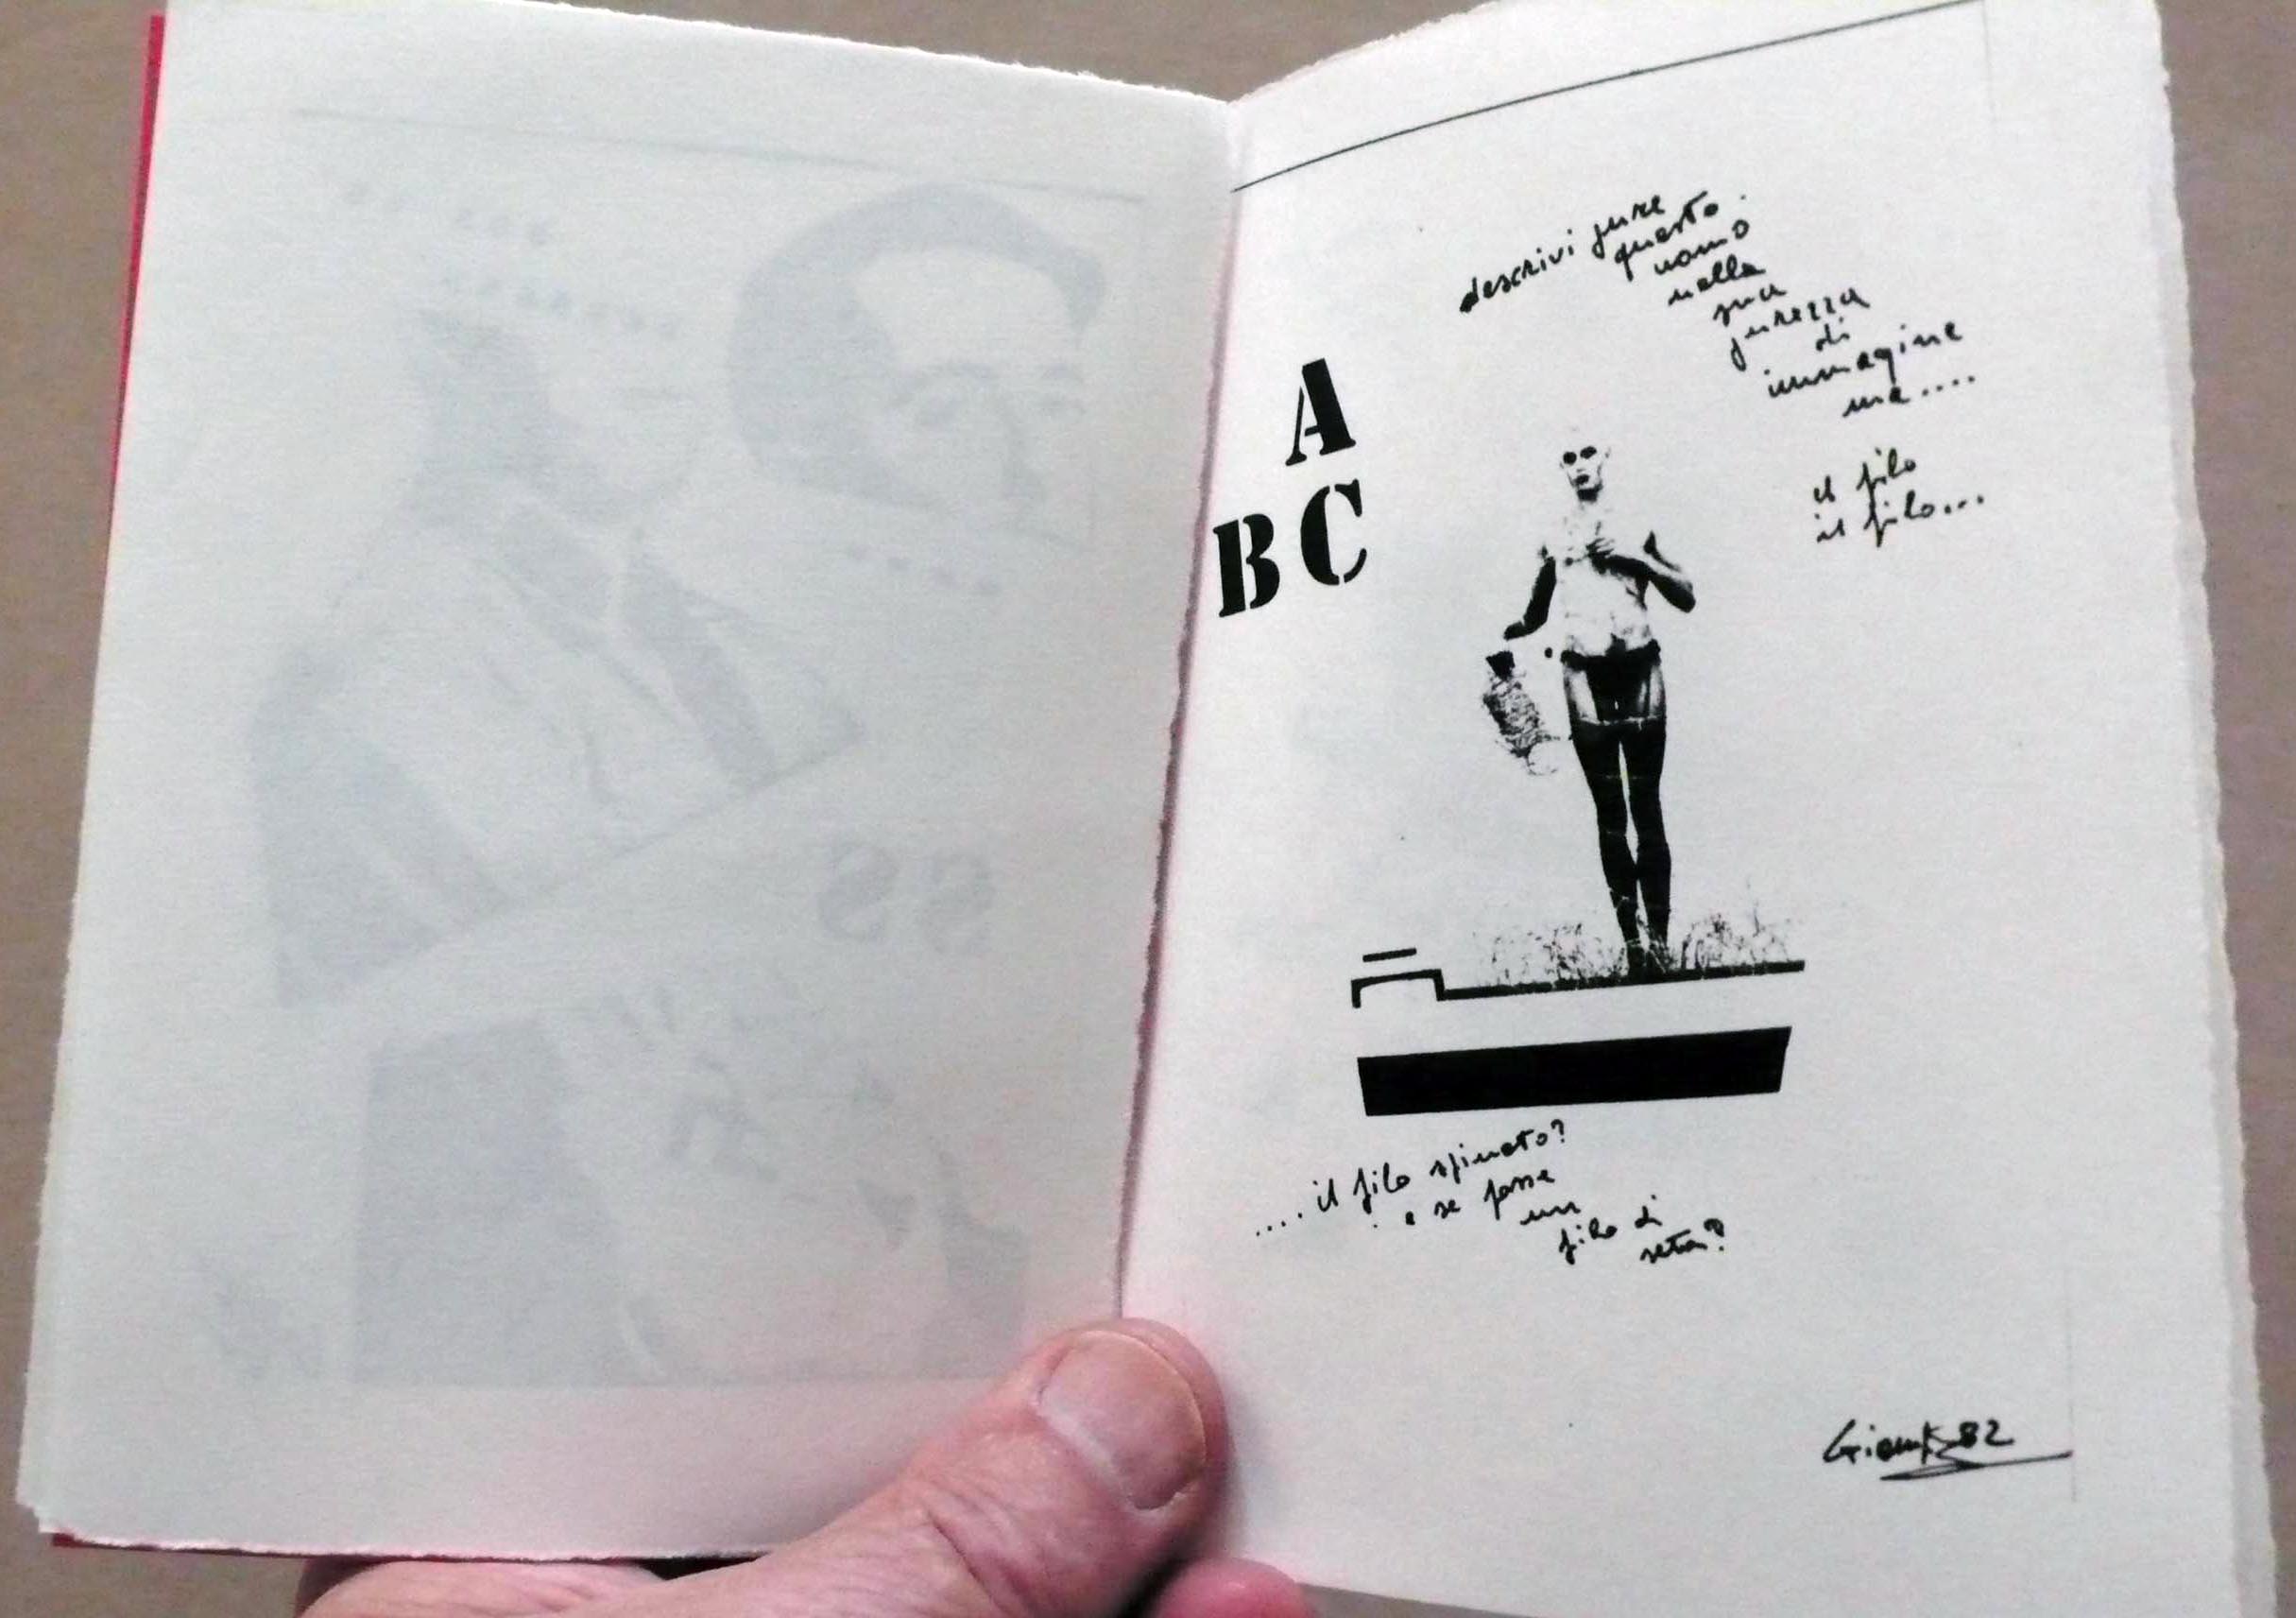 descrivi pure
questo
uomo
nella
sua
purezza
di
immagine
ma....
il filo
il filo...
A
B C
.... il filo spinato?
e se fosse
un
filo di
seta?
82